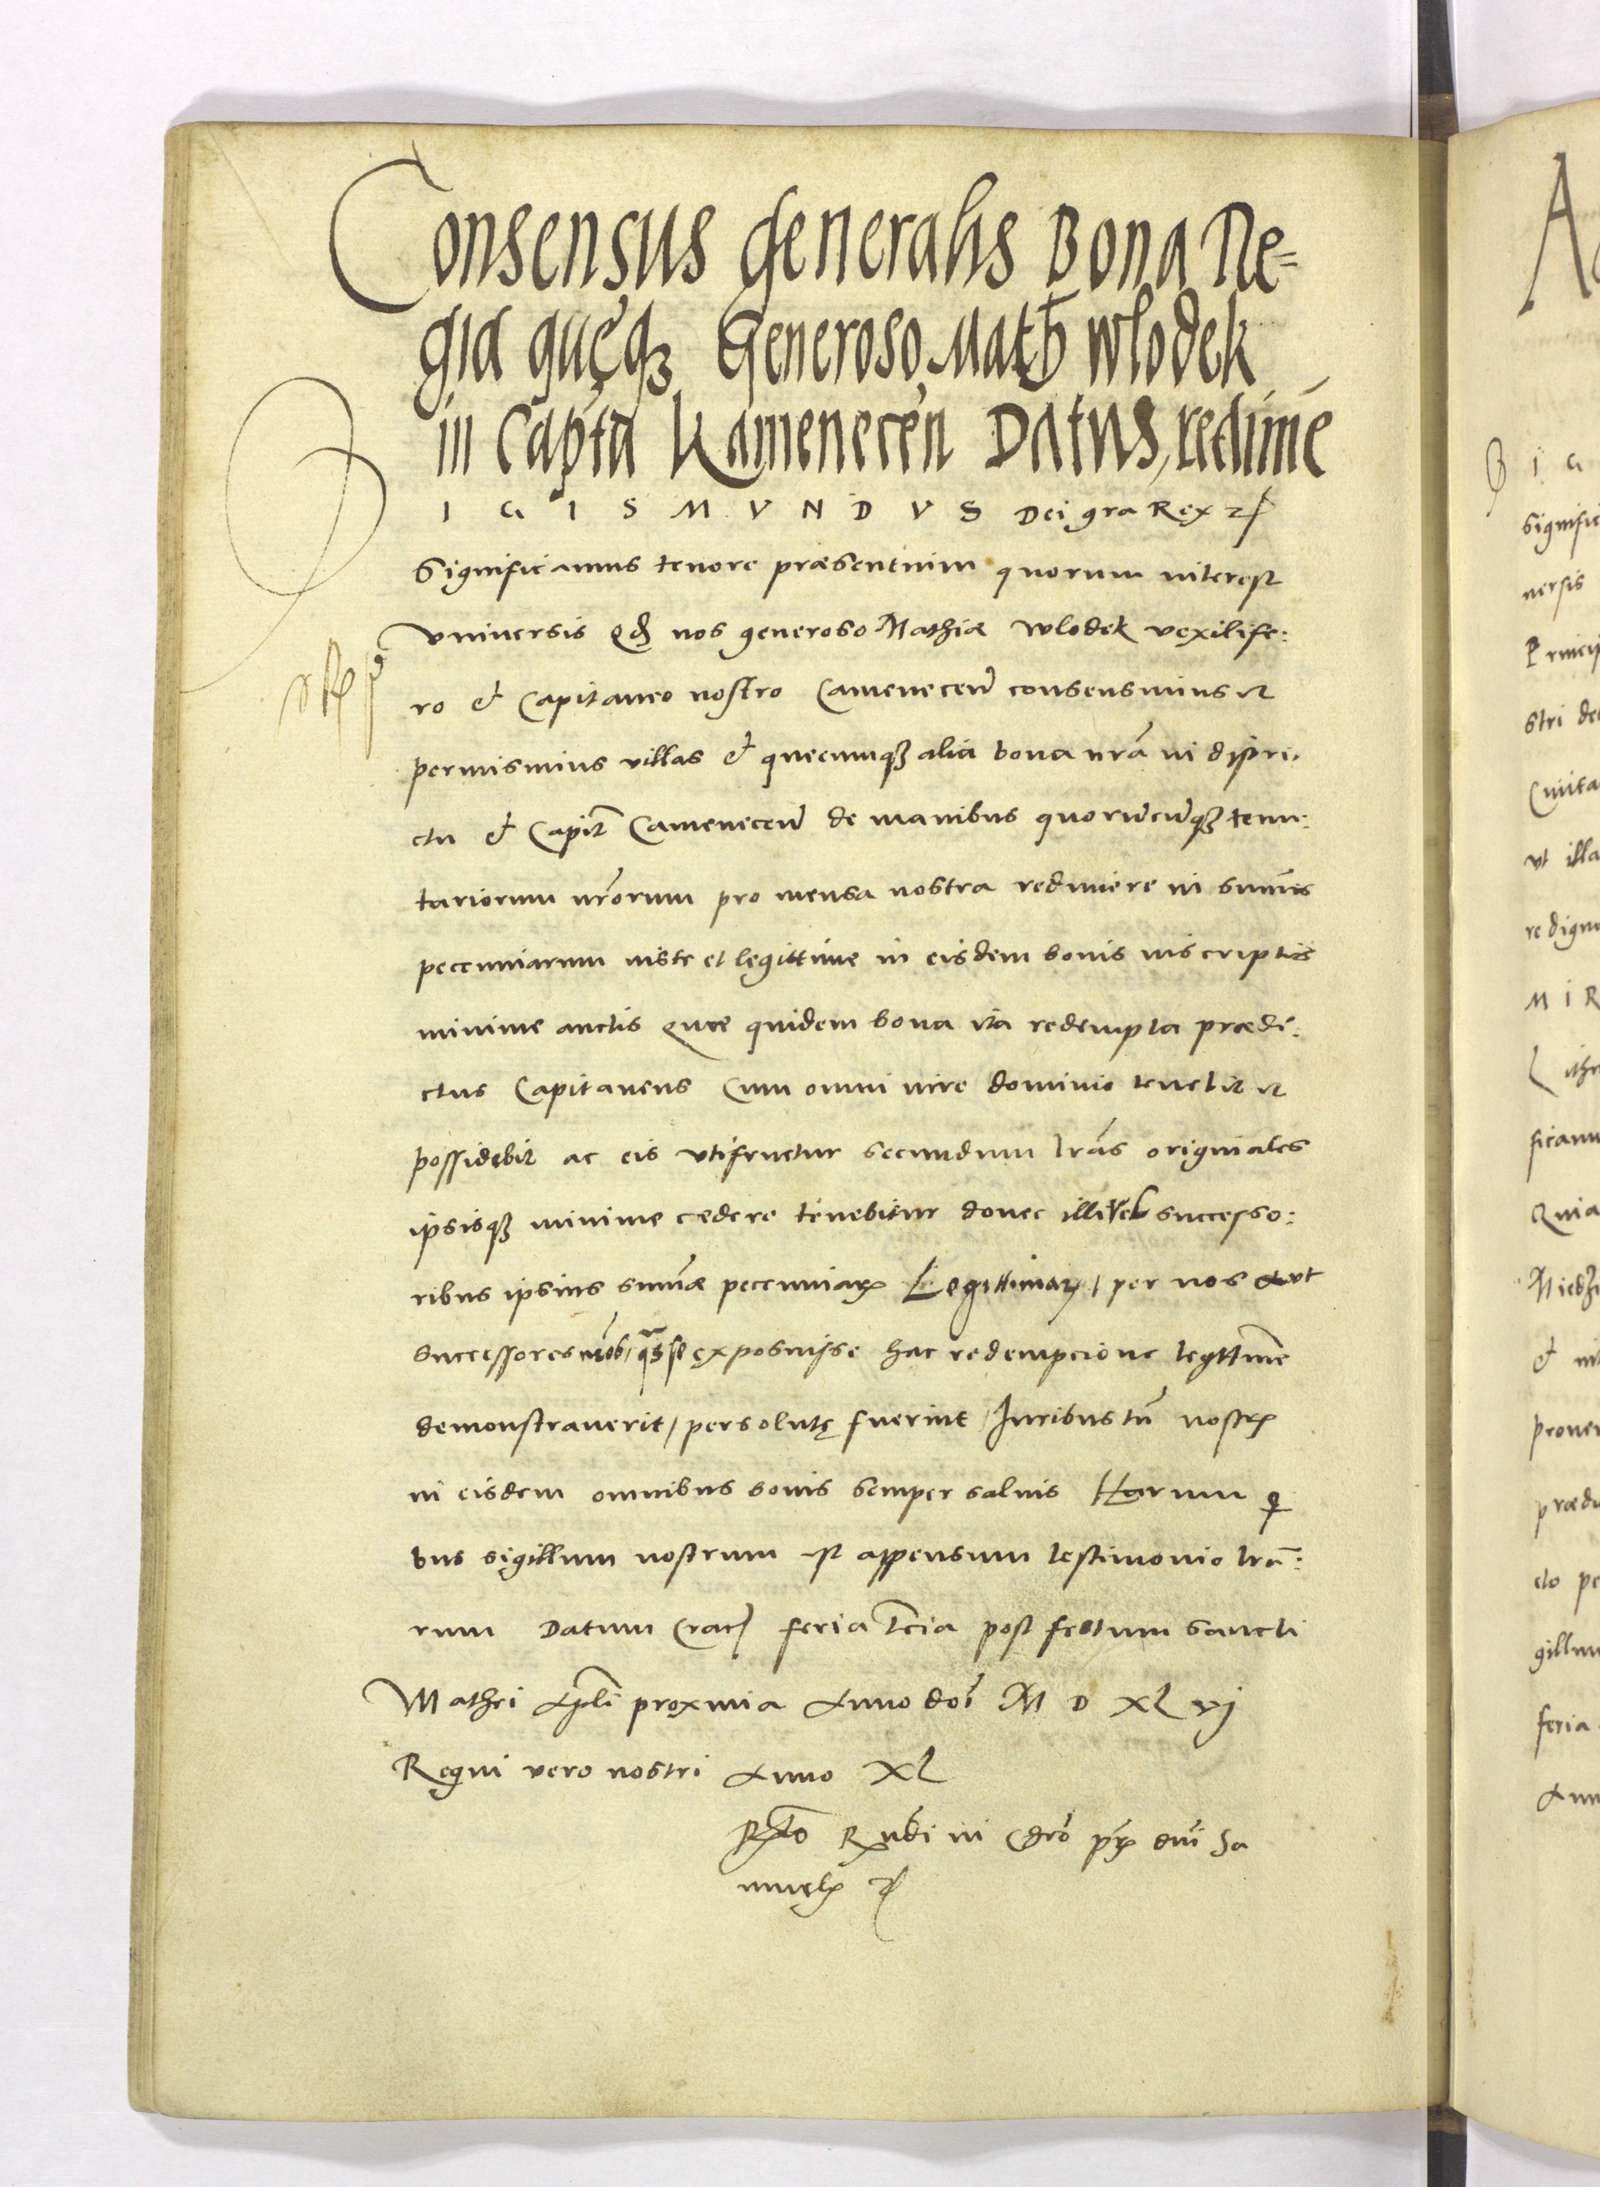 Consensus generalis Bona Re-
gia quęq3 Generoso Math Wlodek
in Capta Kamenecen Datus, redime
S I G I S M V N D V S Dei gra Rex
Significamus tenore præsentium quorum interest
Vniversis qd nos generoso Mathiæ Wlodek vexilife:
ro et Capitaneo nostro Camenecen consensimus et
permisimus villas et quecumq3 alia bona nra in distri.
ctu et Capit Camenecen de manibus quorucunq3 tenu:
tariorum nrorum pro mensa nostra redimere in summis
pecunniarum iuste et legittime in eisdem bonis inscriptis
minime auctis Quæ quidem bona ita redempta prædi:
ctus Capitaneus Cum omni iure dominio tenebit et
possidebit ac eis vtifruetur secundum lras originales
ipsisq3 minime cædere tenebitur donec illi vel successo:
ribus ipsius summæ pecunniar Legittimar per nos aut
Successores nrob, qs se exposuisse hac redempcione legttime
demonstraverit, persolutę fuerint, Iuribus tn nostr
in eisdem omnibus bonis semper salvis Harum q
bus sigillum nostrum est appensum testimonio lra:
rum Datum Crac feria tcia post festum sancti
Mathei Apli proxima Anno doi M D XL vj
Regni vero nostri Anno XL
Rndi in Chro prs dni Sa
muelis